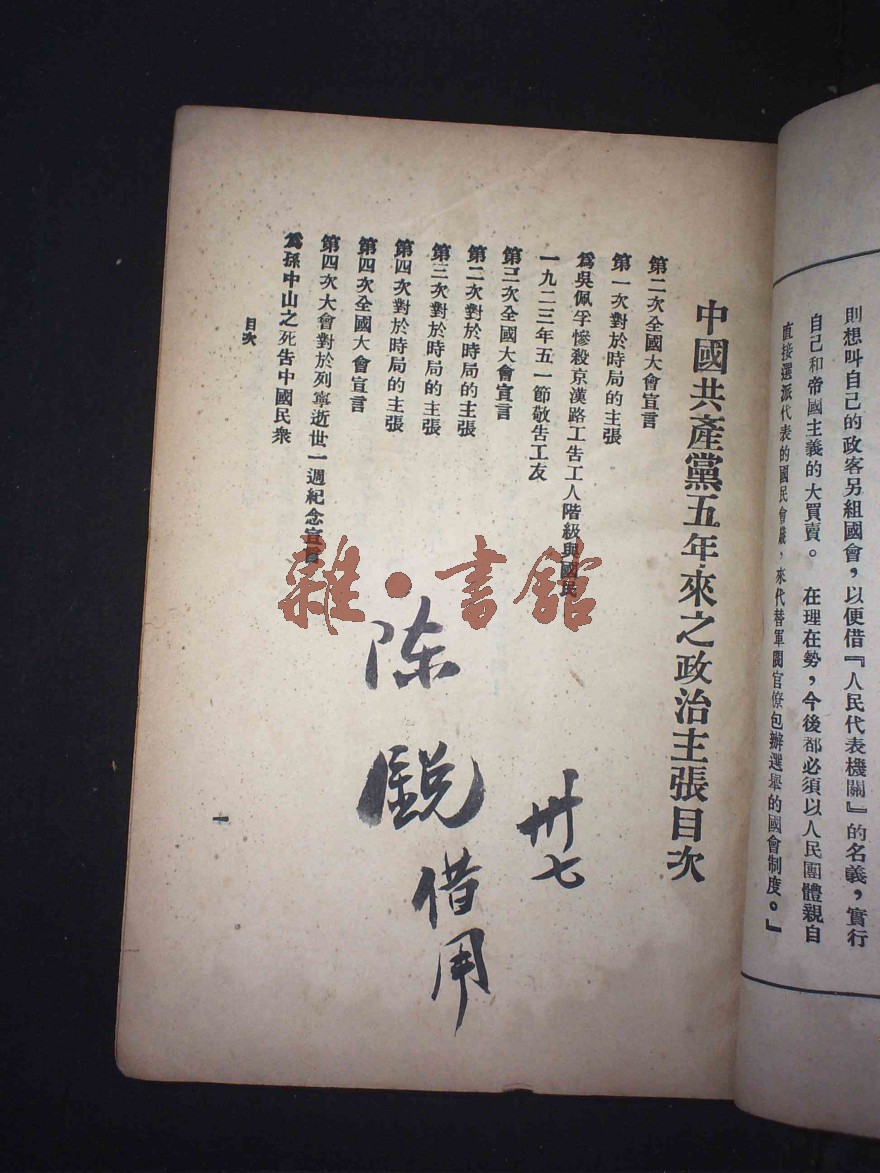 則想叫自己的政客另組國會，以便借『人民代表機關』的名義，實行
自己和帝國主義的大買賣。 在理在勢，今後都必須以人民團體親自
直接選派代表的國民會議，來代替軍閥官僚包辦選舉的國會制度。』
中國共產黨五年來之政治主張目次
第二次全國大會宣言
第一次對於時局的主張
爲吳佩孚慘殺京漢路工告工人階級與國民
一九二三年五一節敬告工友
第三次全國大會宣言
第二次對於時局的主張
第三次對於時局的主張
第四次對於時局的主張
第四次全國大會宣言
第四次大會對於列寧逝世一週紀念宣言
爲孫中山之死告中國民衆
目次
一
卅七
陈鋭借用
雜·書館